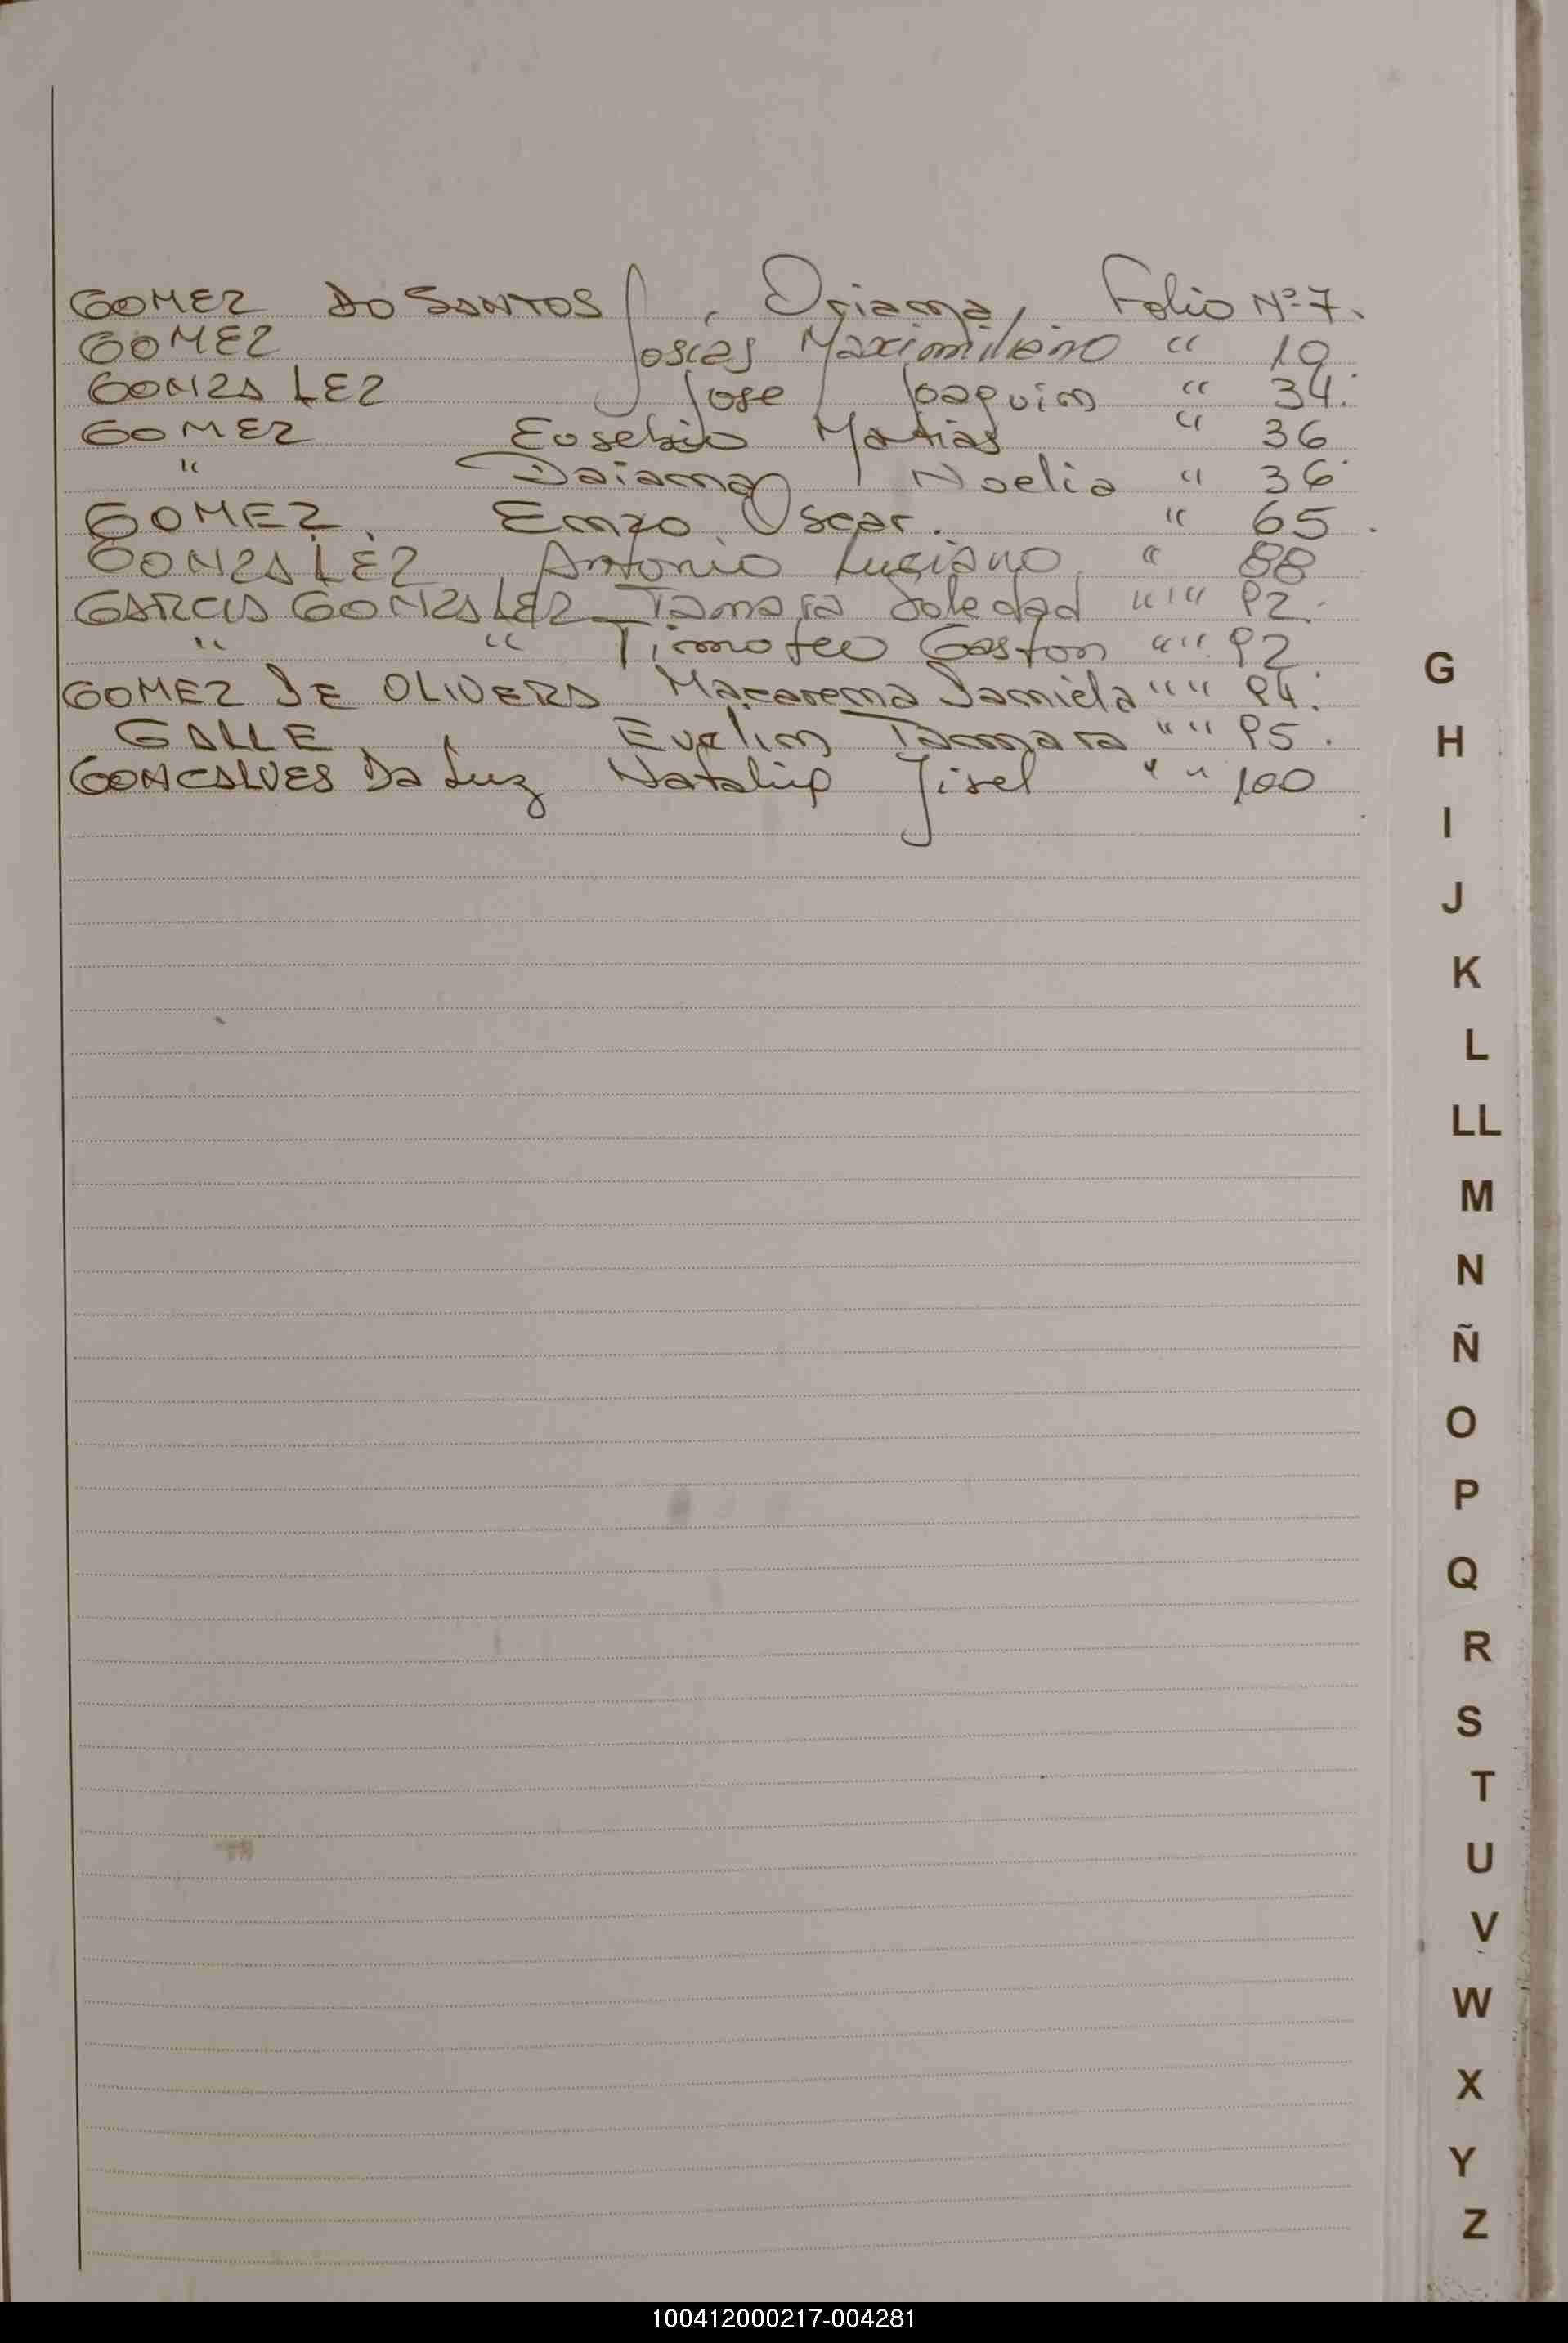 GOMEZ DO SANTOS, Oriana, Folio Nº 7.
GOMEZ Josias Maximiliano " 19
GONZALEZ Jose Joaquin " 34.
GOMEZ Eusebio Matias " 36
" Daiana Noelia " 36
GOMEZ. Enzo Oscar. " 65.
GONZALEZ, Antonio Luciano " 88
GARCIA GONZALEZ Tamara Soledad " " 92.
" " Timoteo Gaston " " 92
GOMEZ DE OLIVERA Macarena Daniela " " 94.
GALLE, Evelin Tamara " " 95.
GONCALVES Da Luz Natalia Jisel " " 100
G
H
I
J
K
L
LL
M
N
Ñ
O
P
Q
R
S
T
U
V
W
X
Y
Z
100412000217-004281